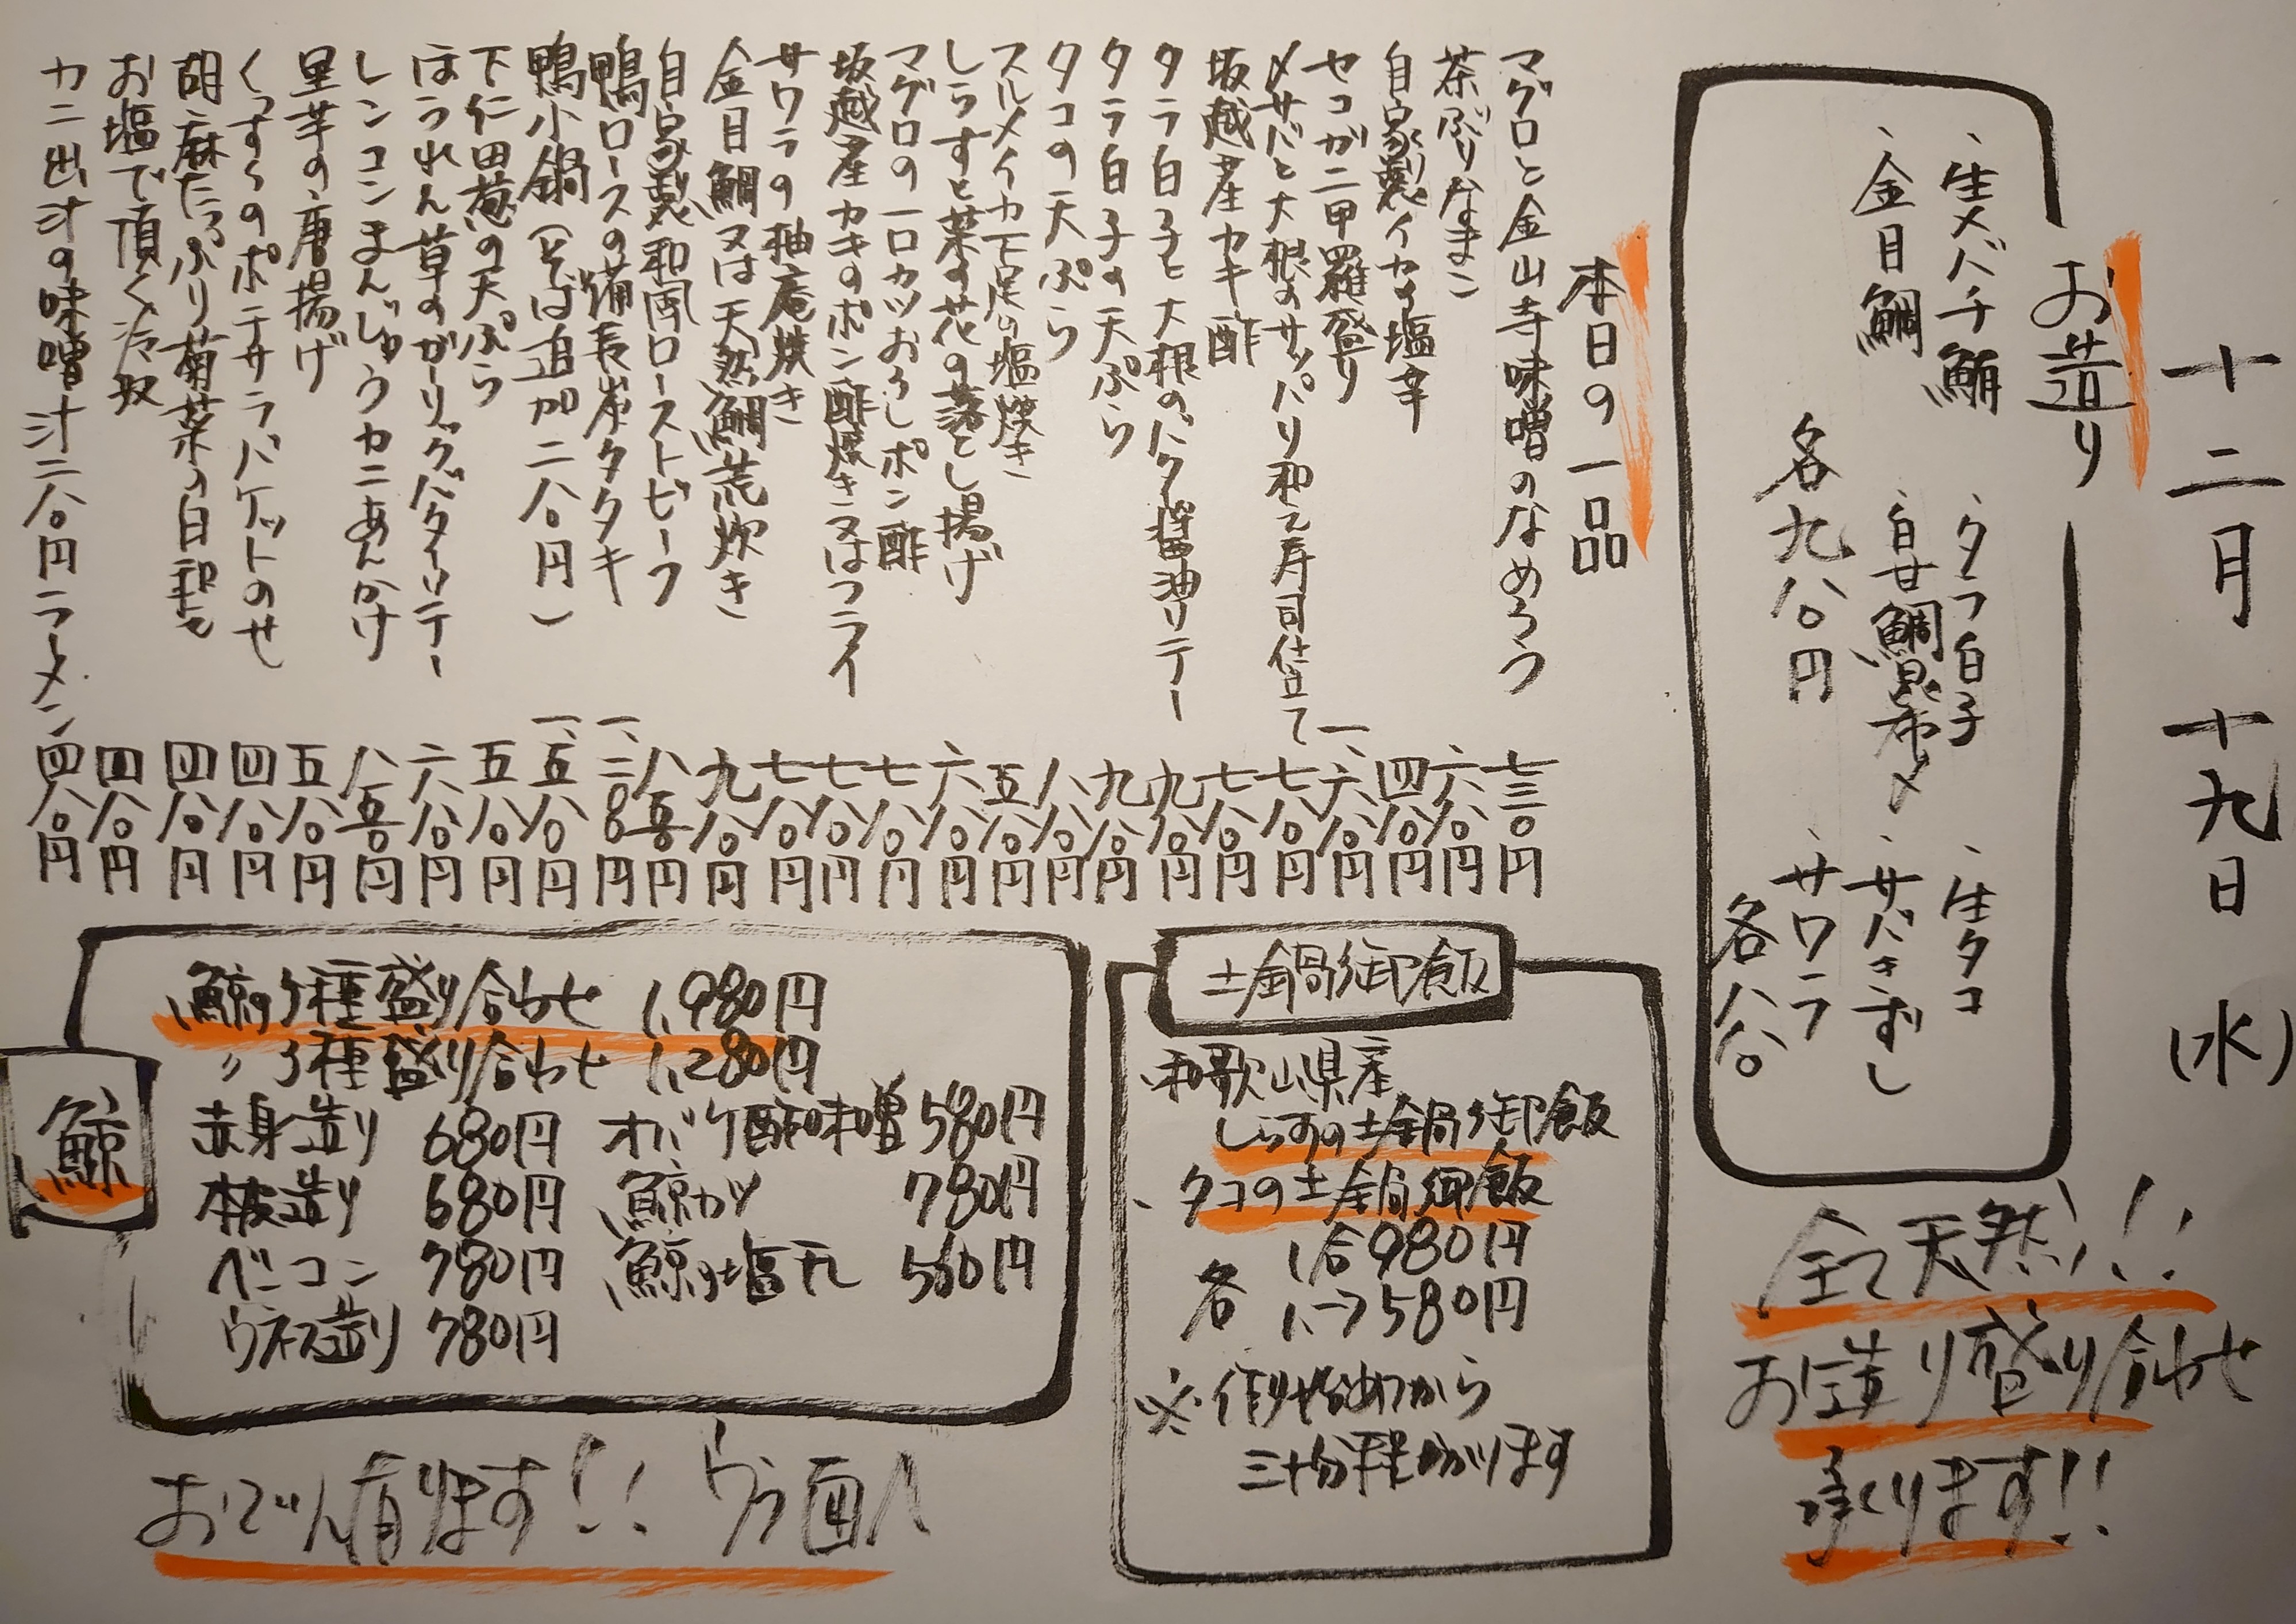 十二月十九日(水)
お造り
、生メバチ鮪
、金目鯛
各九八〇円
、タラ白子
、自家鯛昆布〆
、生タコ
、サバきずし
、サワラ
各八八〇
全て天然!!
お造り盛り合わせ
承ります!!
本日の一品
マグロと金山寺味噌のなめろう 七三〇円
茶ぶりなまこ 六八〇円
自家製イカの塩辛 四八〇円
セコガニ甲羅盛り 一、六八〇円
〆サバと大根のサッパリ和え寿司仕立て 七八〇円
坂越産カキ酢 七八〇円
タラ白子と大根のバタ醤油ソテー 九八〇円
タラ白子の天ぷら 九八〇円
タコの天ぷら 八八〇円
スルメイカ下足の塩焼き 五八〇円
しらすと菜の花の落とし揚げ 六八〇円
マグロの一口カツおろしポン酢 七八〇円
坂越産カキのポン酢焼き又はフライ 七八〇円
サワラの柚庵焼き 七八〇円
金目鯛又は天然鯛荒炊き 九八〇円
自家製和風ローストビーフ 八五〇円
鴨ロースの備長炭タタキ 一、二八〇円
鴨小鍋(そば追加二八〇円) 一、五八〇円
下仁田葱の天ぷら 五八〇円
ほうれん草のガーリックバターソテー 六八〇円
レンコンまんじゅうカニあんかけ 八五〇円
里芋の唐揚げ 五八〇円
くんすらのポテサラバケットのせ 四八〇円
胡麻たっぷり菊菜の白和え 四八〇円
お塩で頂く冷奴 四八〇円
カニ出汁の味噌汁二八〇円ラーメン 四八〇円
土鍋御飯
、和歌山県産
しらすの土鍋御飯
、タコの土鍋御飯
各 1合980円
1、580円
※作り始めてから
三十分程かかります
鯨
鯨の5種盛り合わせ 1,980円
〃3種盛り合わせ 1,280円
赤身造り 680円
本皮造り 680円
ベーコン 780円
ウネス造り 780円
オバケ酢味噌 580円
鯨カツ 780円
鯨の塩干 560円
おでん有ります!! ウラ面へ